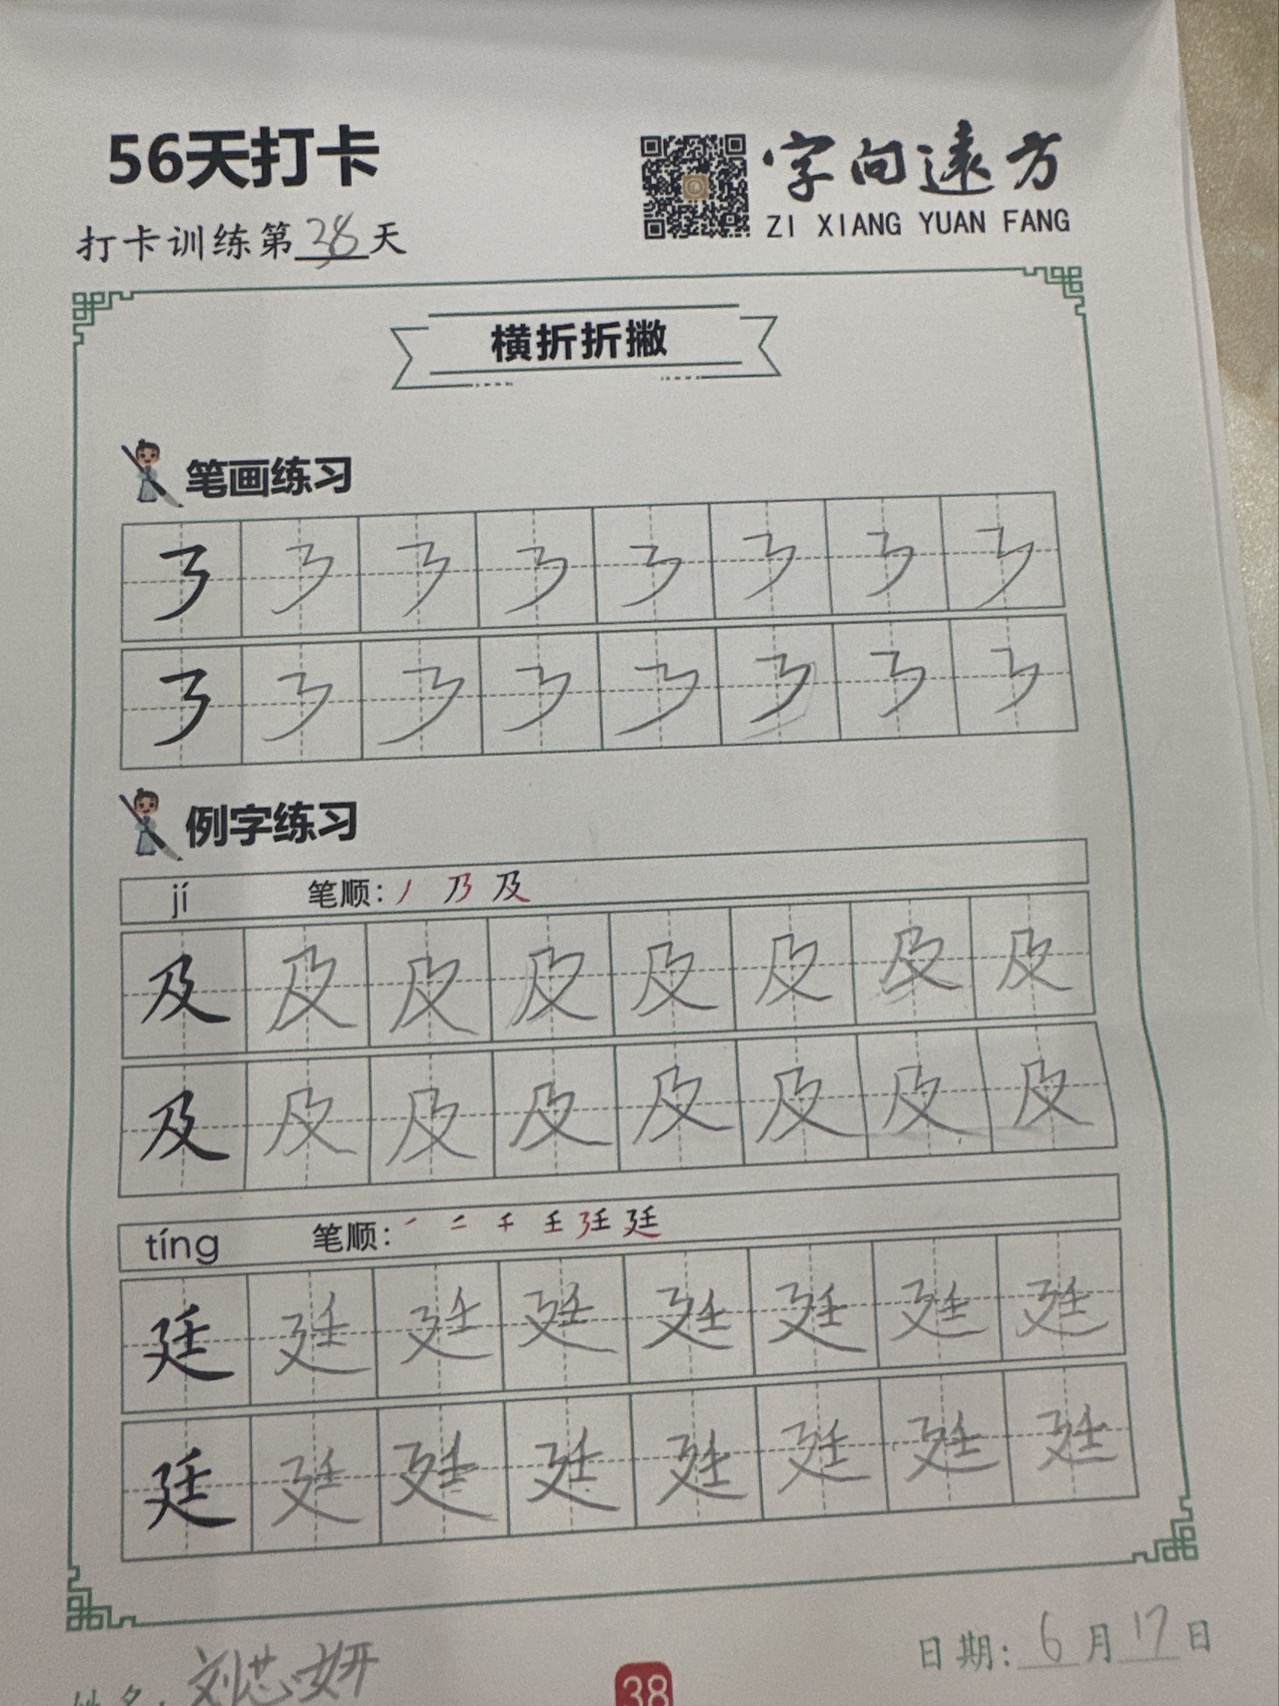 56天打卡
字向远方
ZI XIANG YUAN FANG
打卡训练第38天
横折折撇
笔画练习
㇋ ㇋ ㇋ ㇋ ㇋ ㇋ ㇋ ㇋
㇋ ㇋ ㇋ ㇋ ㇋ ㇋ ㇋ ㇋
例字练习
jí 笔顺: 丿 乃 及
及 及 及 及 及 及 及 及
及 及 及 及 及 及 及 及
tíng 笔顺: ㇒ 二 千 壬 廷 廷
廷 廷 廷 廷 廷 廷 廷 廷
廷 廷 廷 廷 廷 廷 廷 廷
姓名: 刘芯妍
38
日期: 6月17日